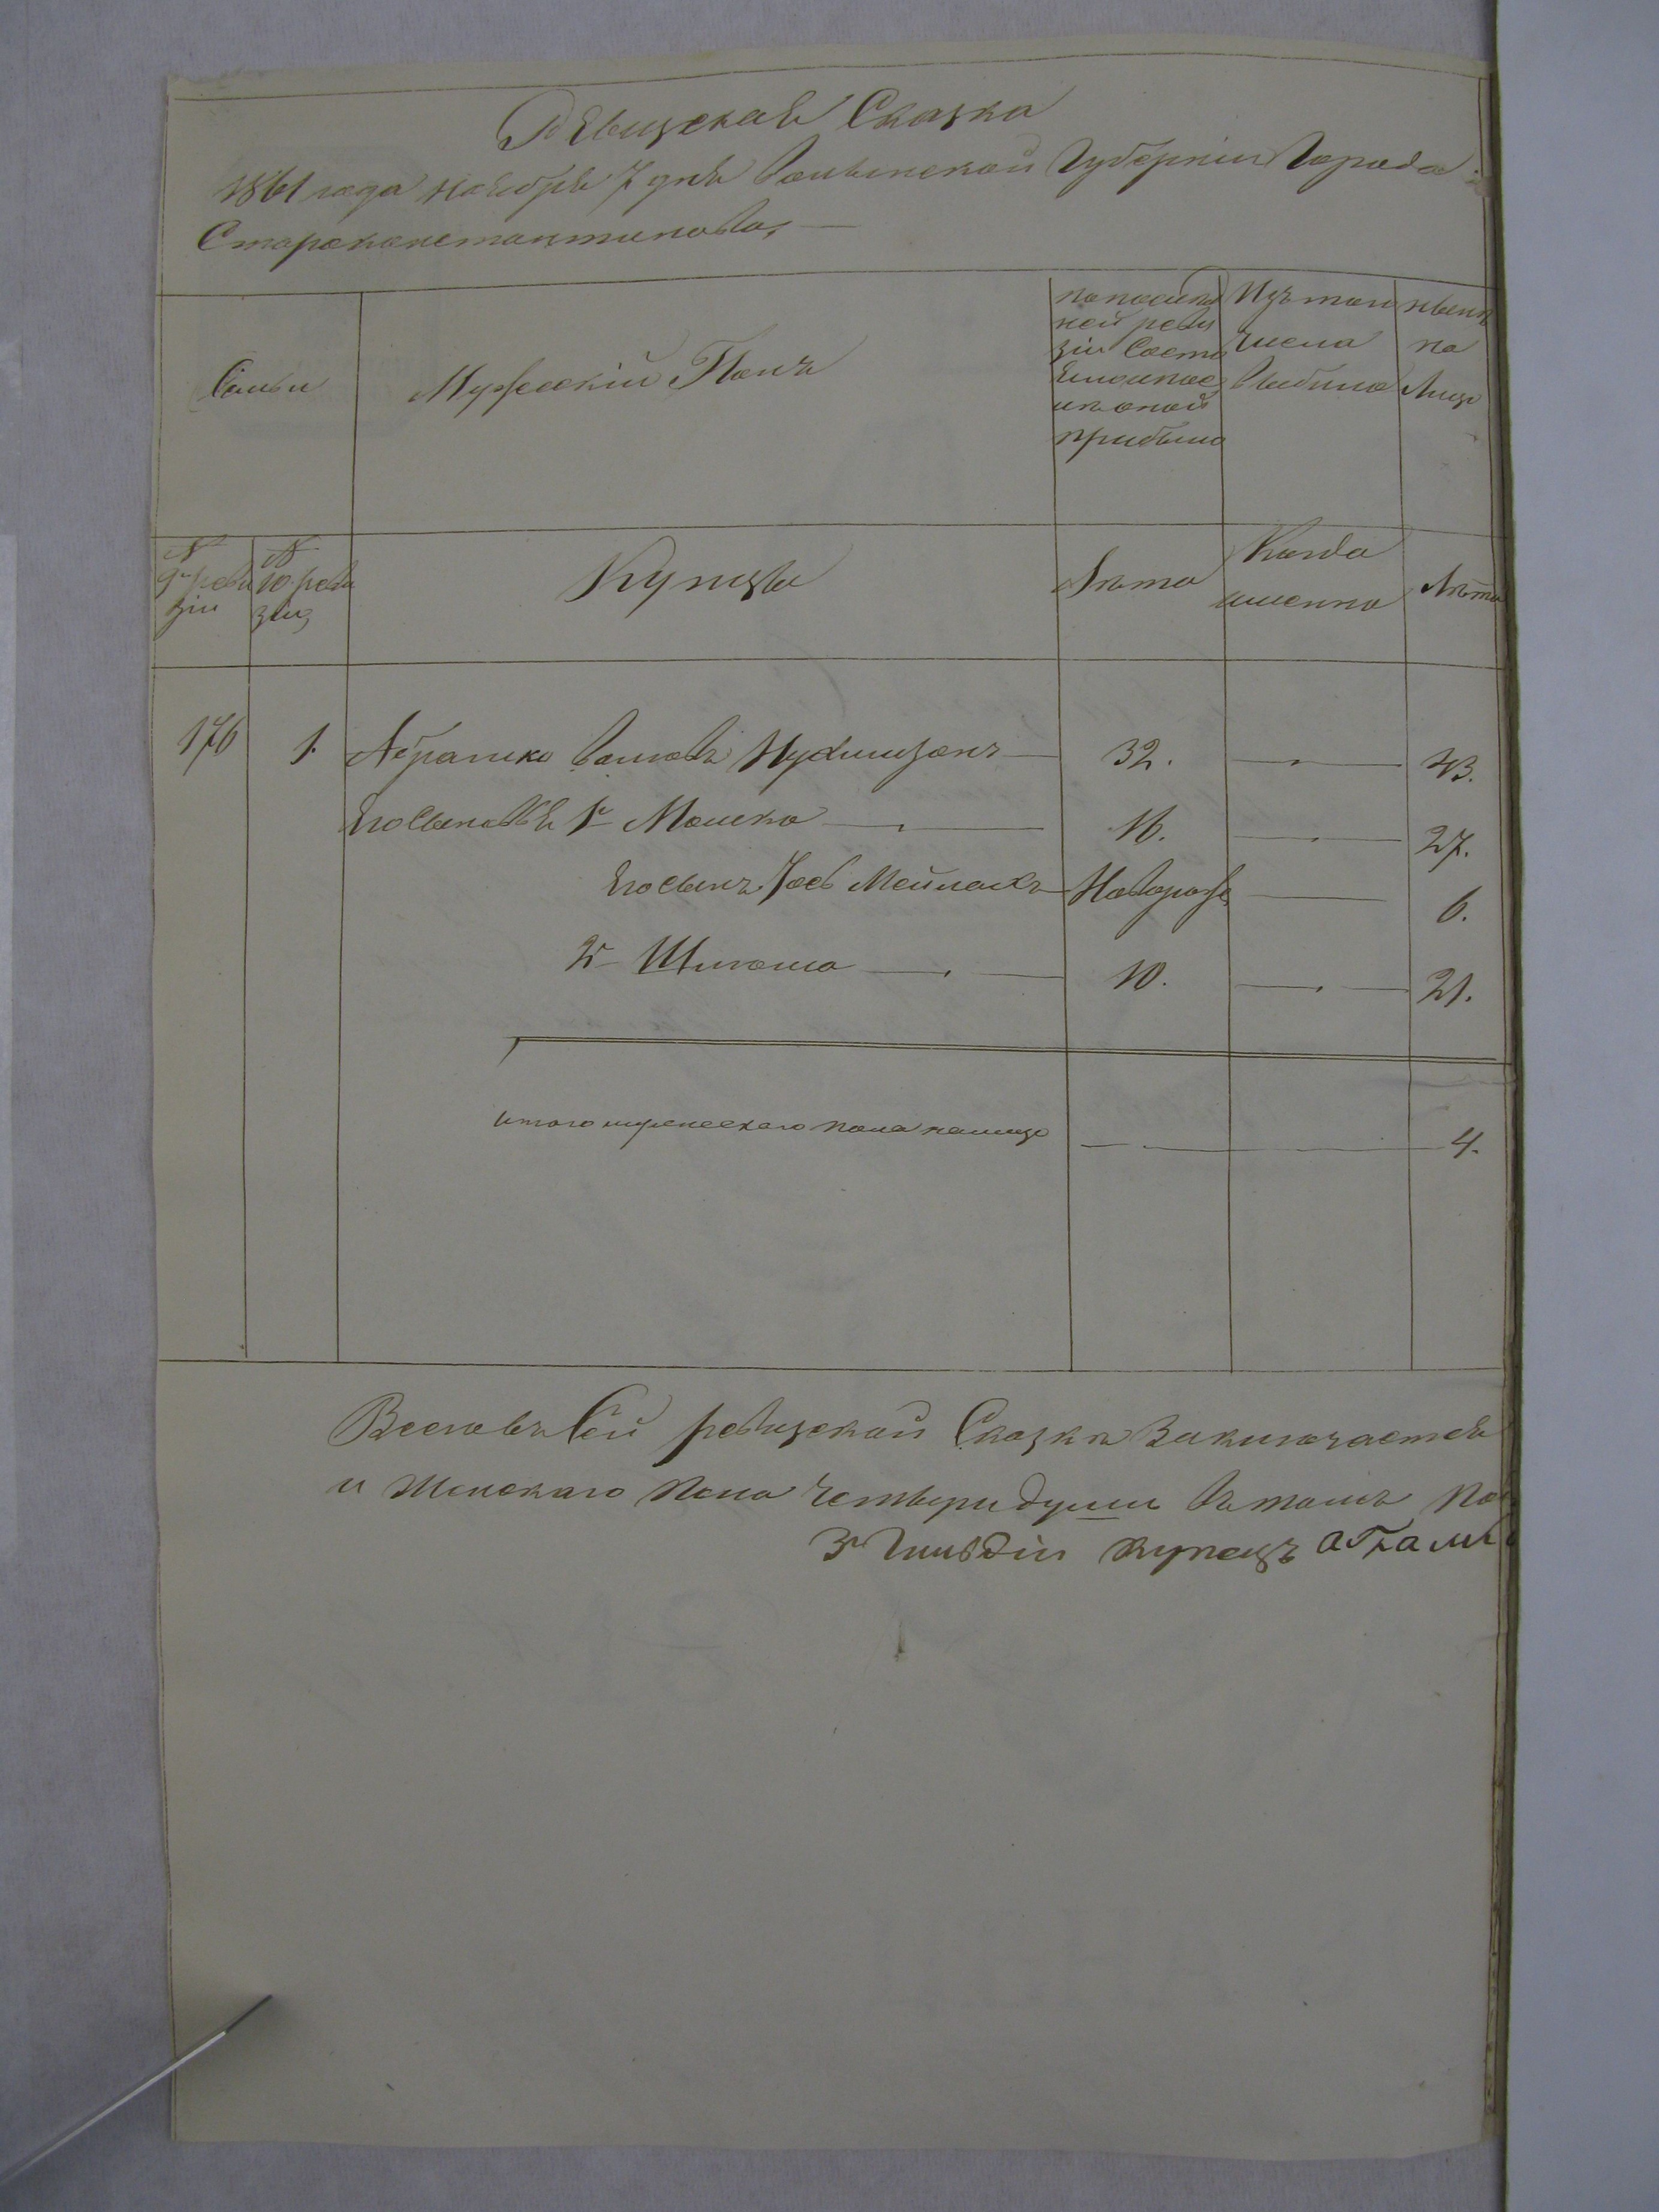 Ревизская Сказка
1861 года Ноября 7 дня Волынской Губерніи Города
Староконстантинова,
Семьи
Мужескій Полъ
по послѣд
ней реви
зіи Состо
яло и пос
лѣ оной
прибыло
Изъ того
числа
выбыло
нынѣ
на
Лицо
№
9й реви
зіи
№
10 реви
зіи
Купцы
Лѣта
Когда
именно
Лѣта
176 1. Абрамко 32. 43.
Его Сыновья 1й Мошко 16. 27.
Его сынъ Іосъ Новорож 6.
2й 10. 21.
итого мужескаго пола налицо 4.
Сей ревизской Сказкѣ Заключается
и Женскаго Пола Четыри души въ томъ
3й Гильдіи Купецъ